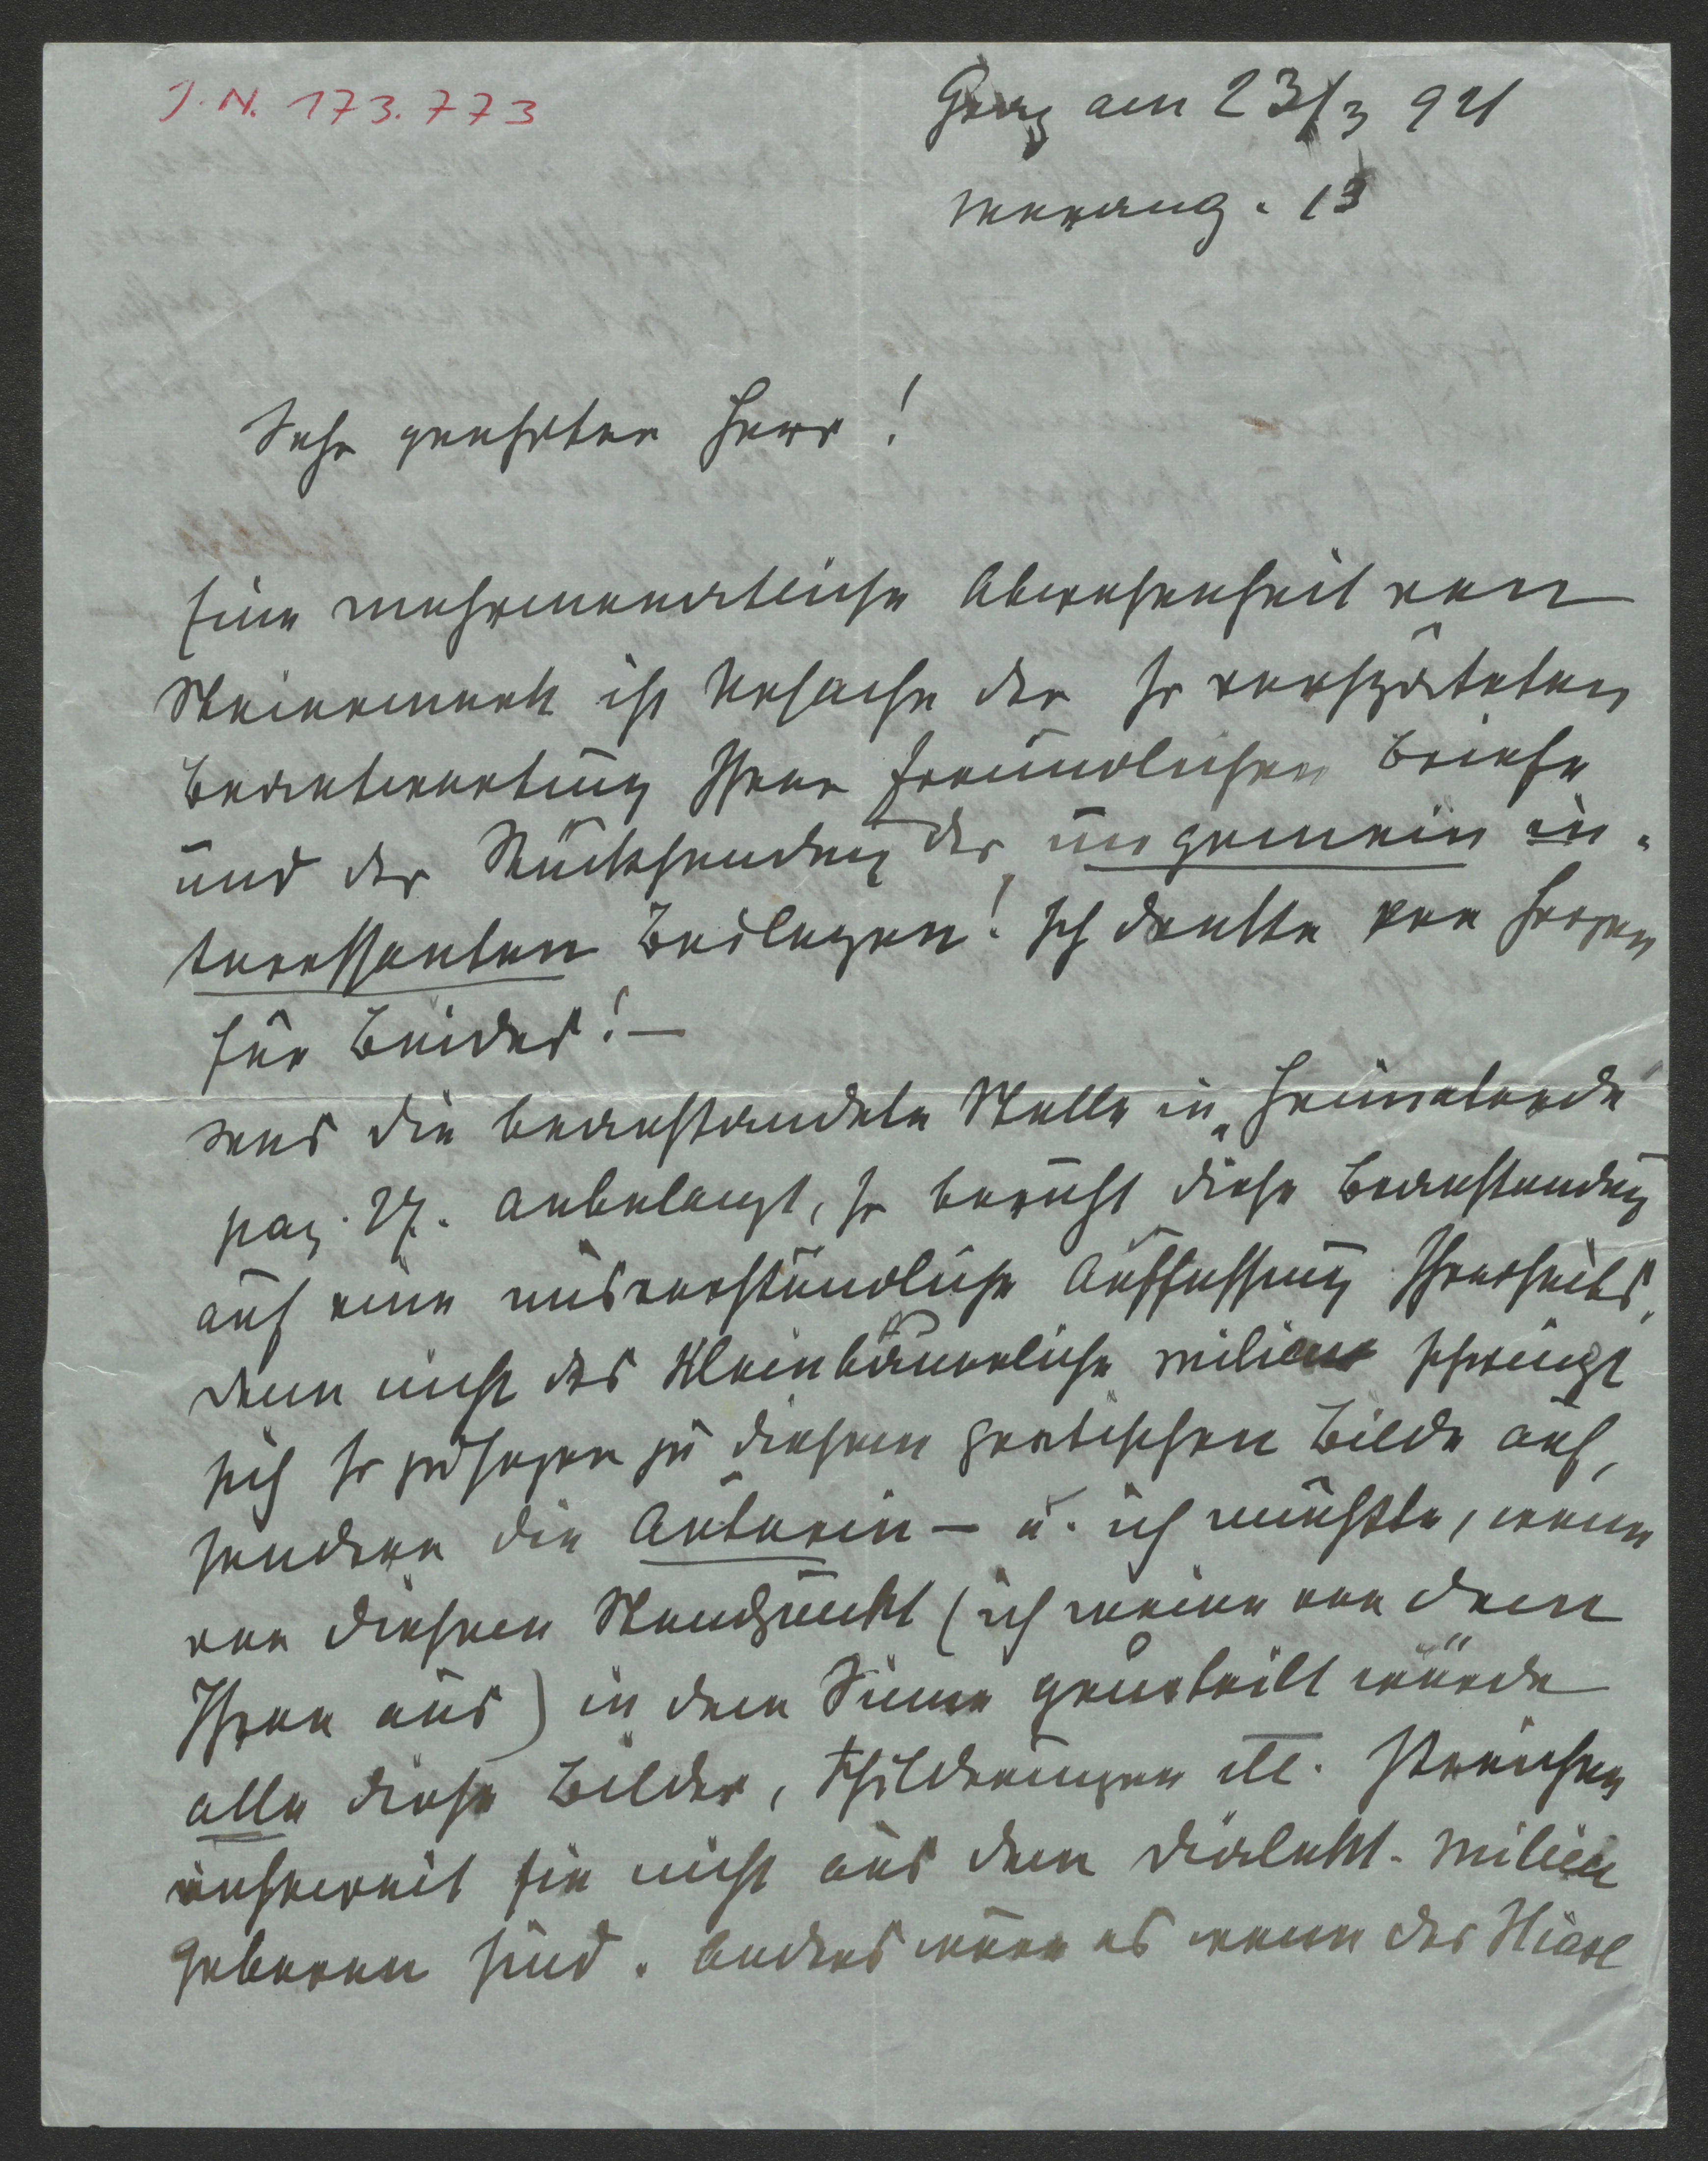 J. N. 173.773
Graz am 23/3 921
Merang. 13
Sehr geehrter Herr!
Eine mehrmonatliche Abwesenheit von
Steiermark ist Ursache der so verspäteten
Beantwortung Ihrer freundlichen Briefe
und der Rücksendung der ungemein in-
teressanten Beilagen! Ich danke von Herzen
für Beides! —
Was die beanstandete Stelle in „Heimaterde"
pag. 27. anbelangt, so beruht diese Beanstandung
auf eine misverständliche Auffassung Ihrerseits,
denn nicht das Kleinbäuerliche Milieu schwingt
sich so zusagen zu diesem poetischen Bilde auf,
sondern die Autorin — u. ich müsste, wenn
von diesem Standpunkt (ich meine von dem
Ihren aus) in dem Sinne geurteilt würde
alle diese Bilder, Schilderungen etc. streichen
insoweit sie nicht aus dem Dialekt-Milieu
geboren sind. Anders wäre es wenn der Hiasl